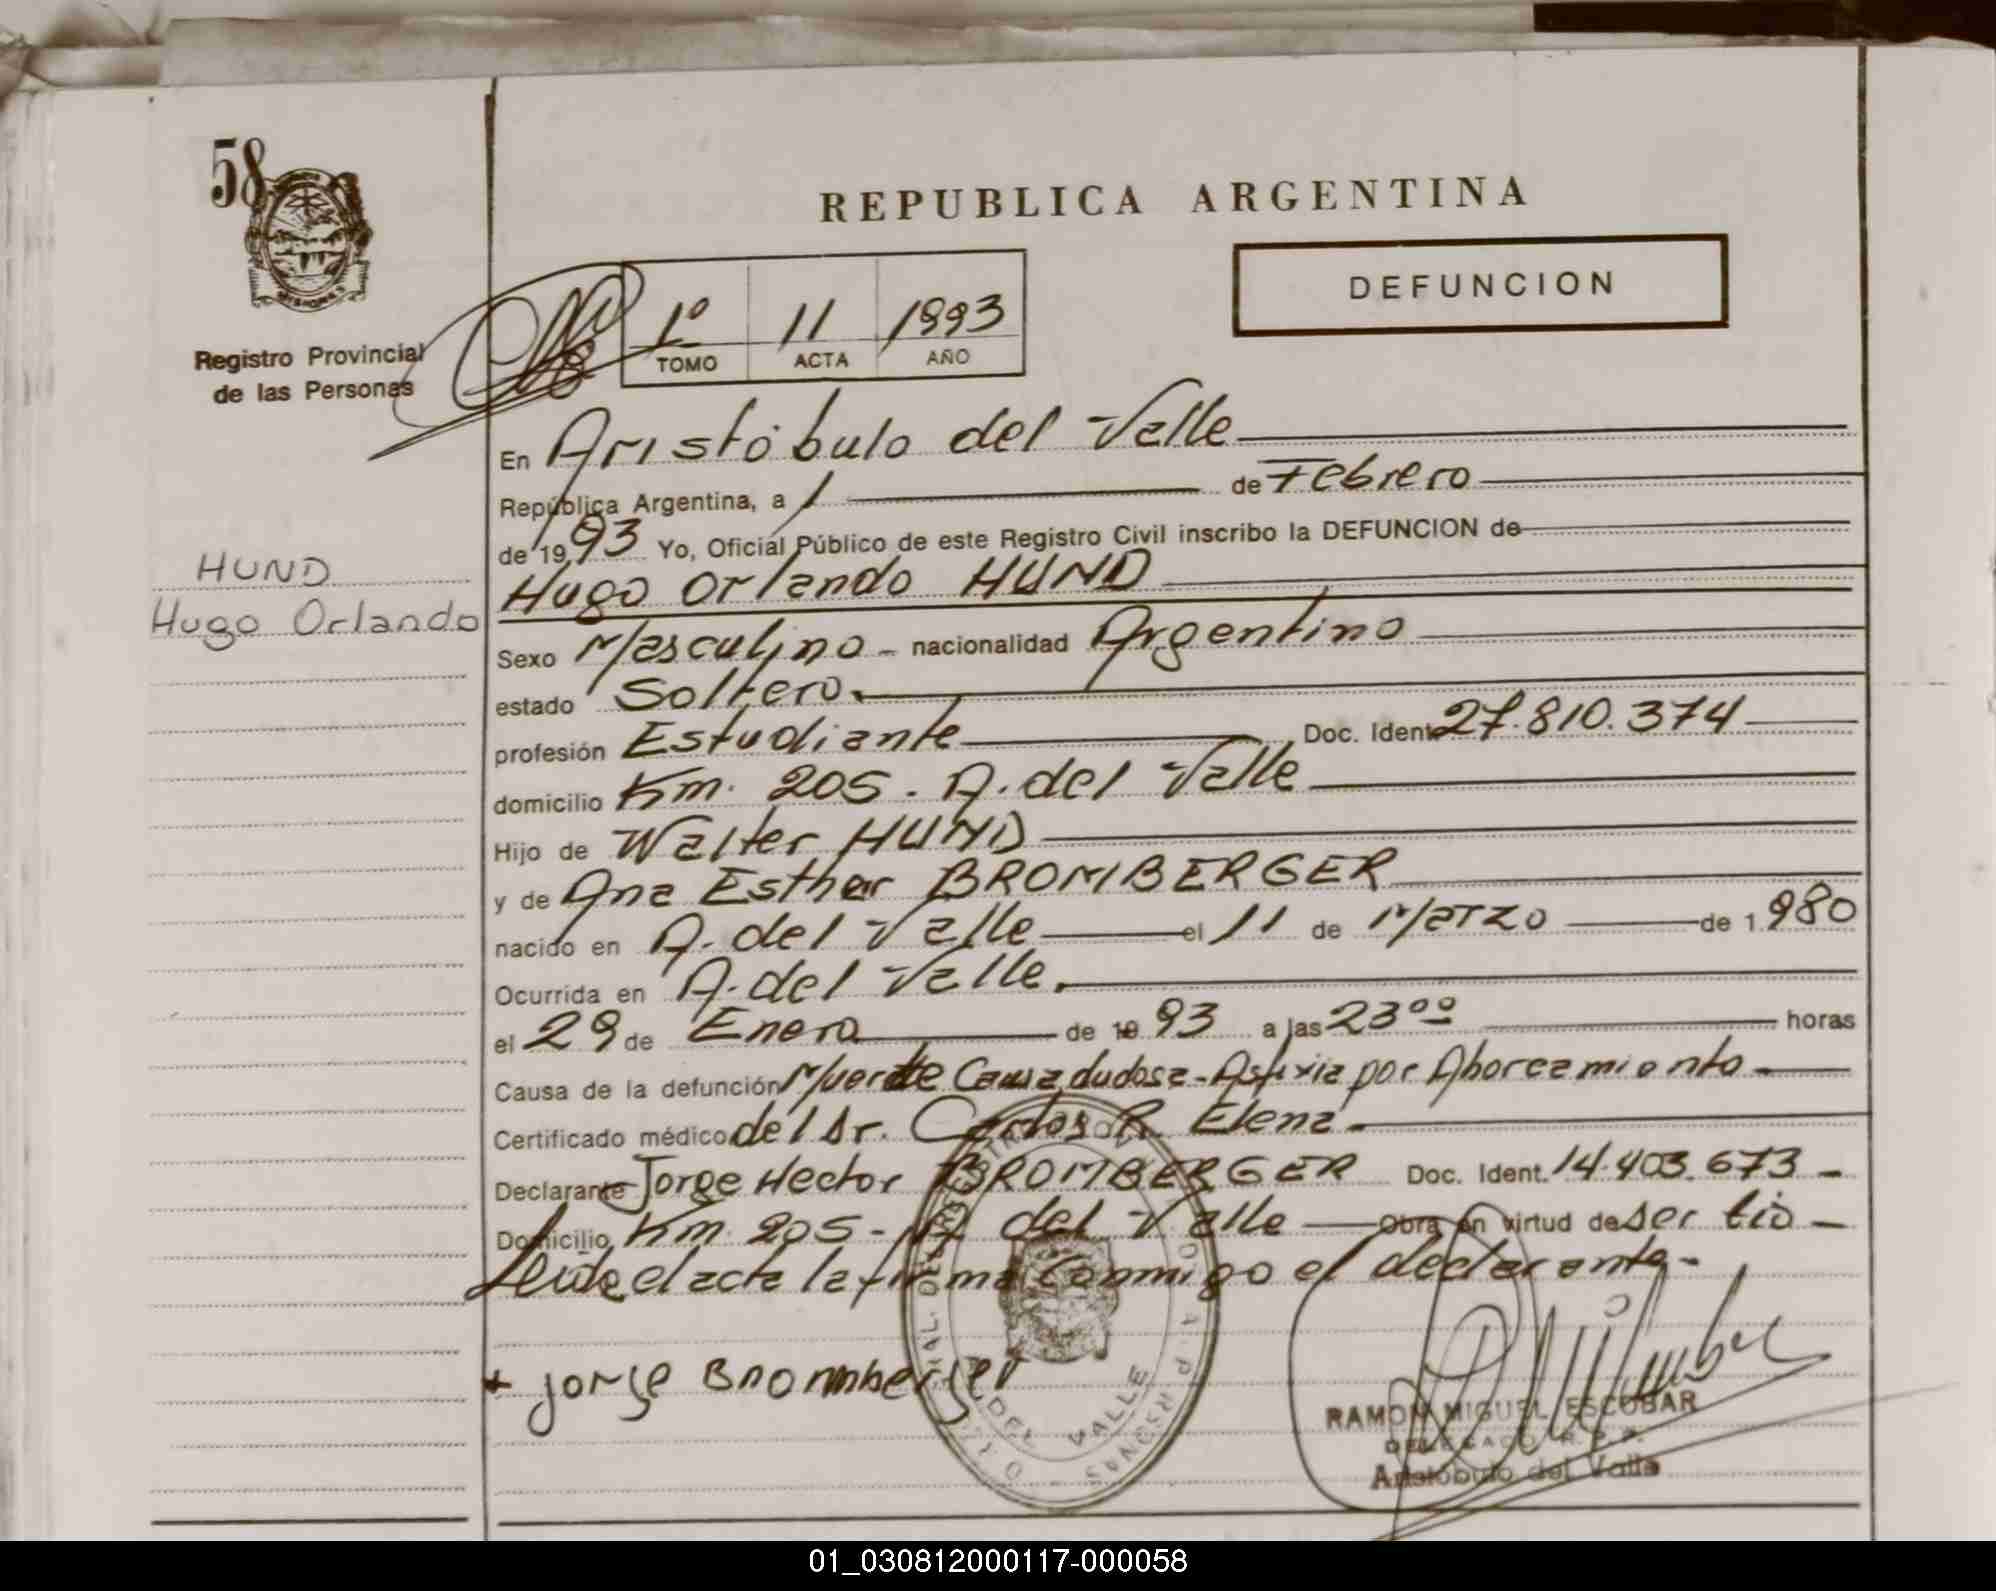 58
REPUBLICA ARGENTINA
DEFUNCION
1º 11 1993
TOMO ACTA AÑO
Registro Provincial
de las Personas
En Aristóbulo del Valle
República Argentina, a 1 de Febrero
de 1993 Yo, Oficial Público de este Registro Civil inscribo la DEFUNCION de
HUND
Hugo Orlando
Hugo Orlando HUND
Sexo Masculino - nacionalidad Argentino
estado Soltero.
profesión Estudiante Doc. Ident. 27.810.374
domicilio Km. 205. A. del Valle
Hijo de Walter HUND
y de Ana Esther BROMBERGER
nacido en A. del Valle el 11 de Marzo de 1.980
Ocurrida en A. del Valle.
el 29 de Enero de 1993 a las 23⁰⁰ horas
Causa de la defunción Muerte Causa dudosa - Asfixia por Ahorcamiento -
Certificado médico del Dr. Carlos R. Elena -
Declarante Jorge Hector BROMBERGER Doc. Ident. 14.403.673 -
Domicilio Km. 205 - A. del Valle Obra en virtud de ser tio -
Leída el acta la firma conmigo el declarante -
Jorge Bromberger
DEL VALLE
RAMON MIGUEL ESCOBAR
DELEGADO R.P.P.
Aristóbulo del Valle
01_030812000117-000058